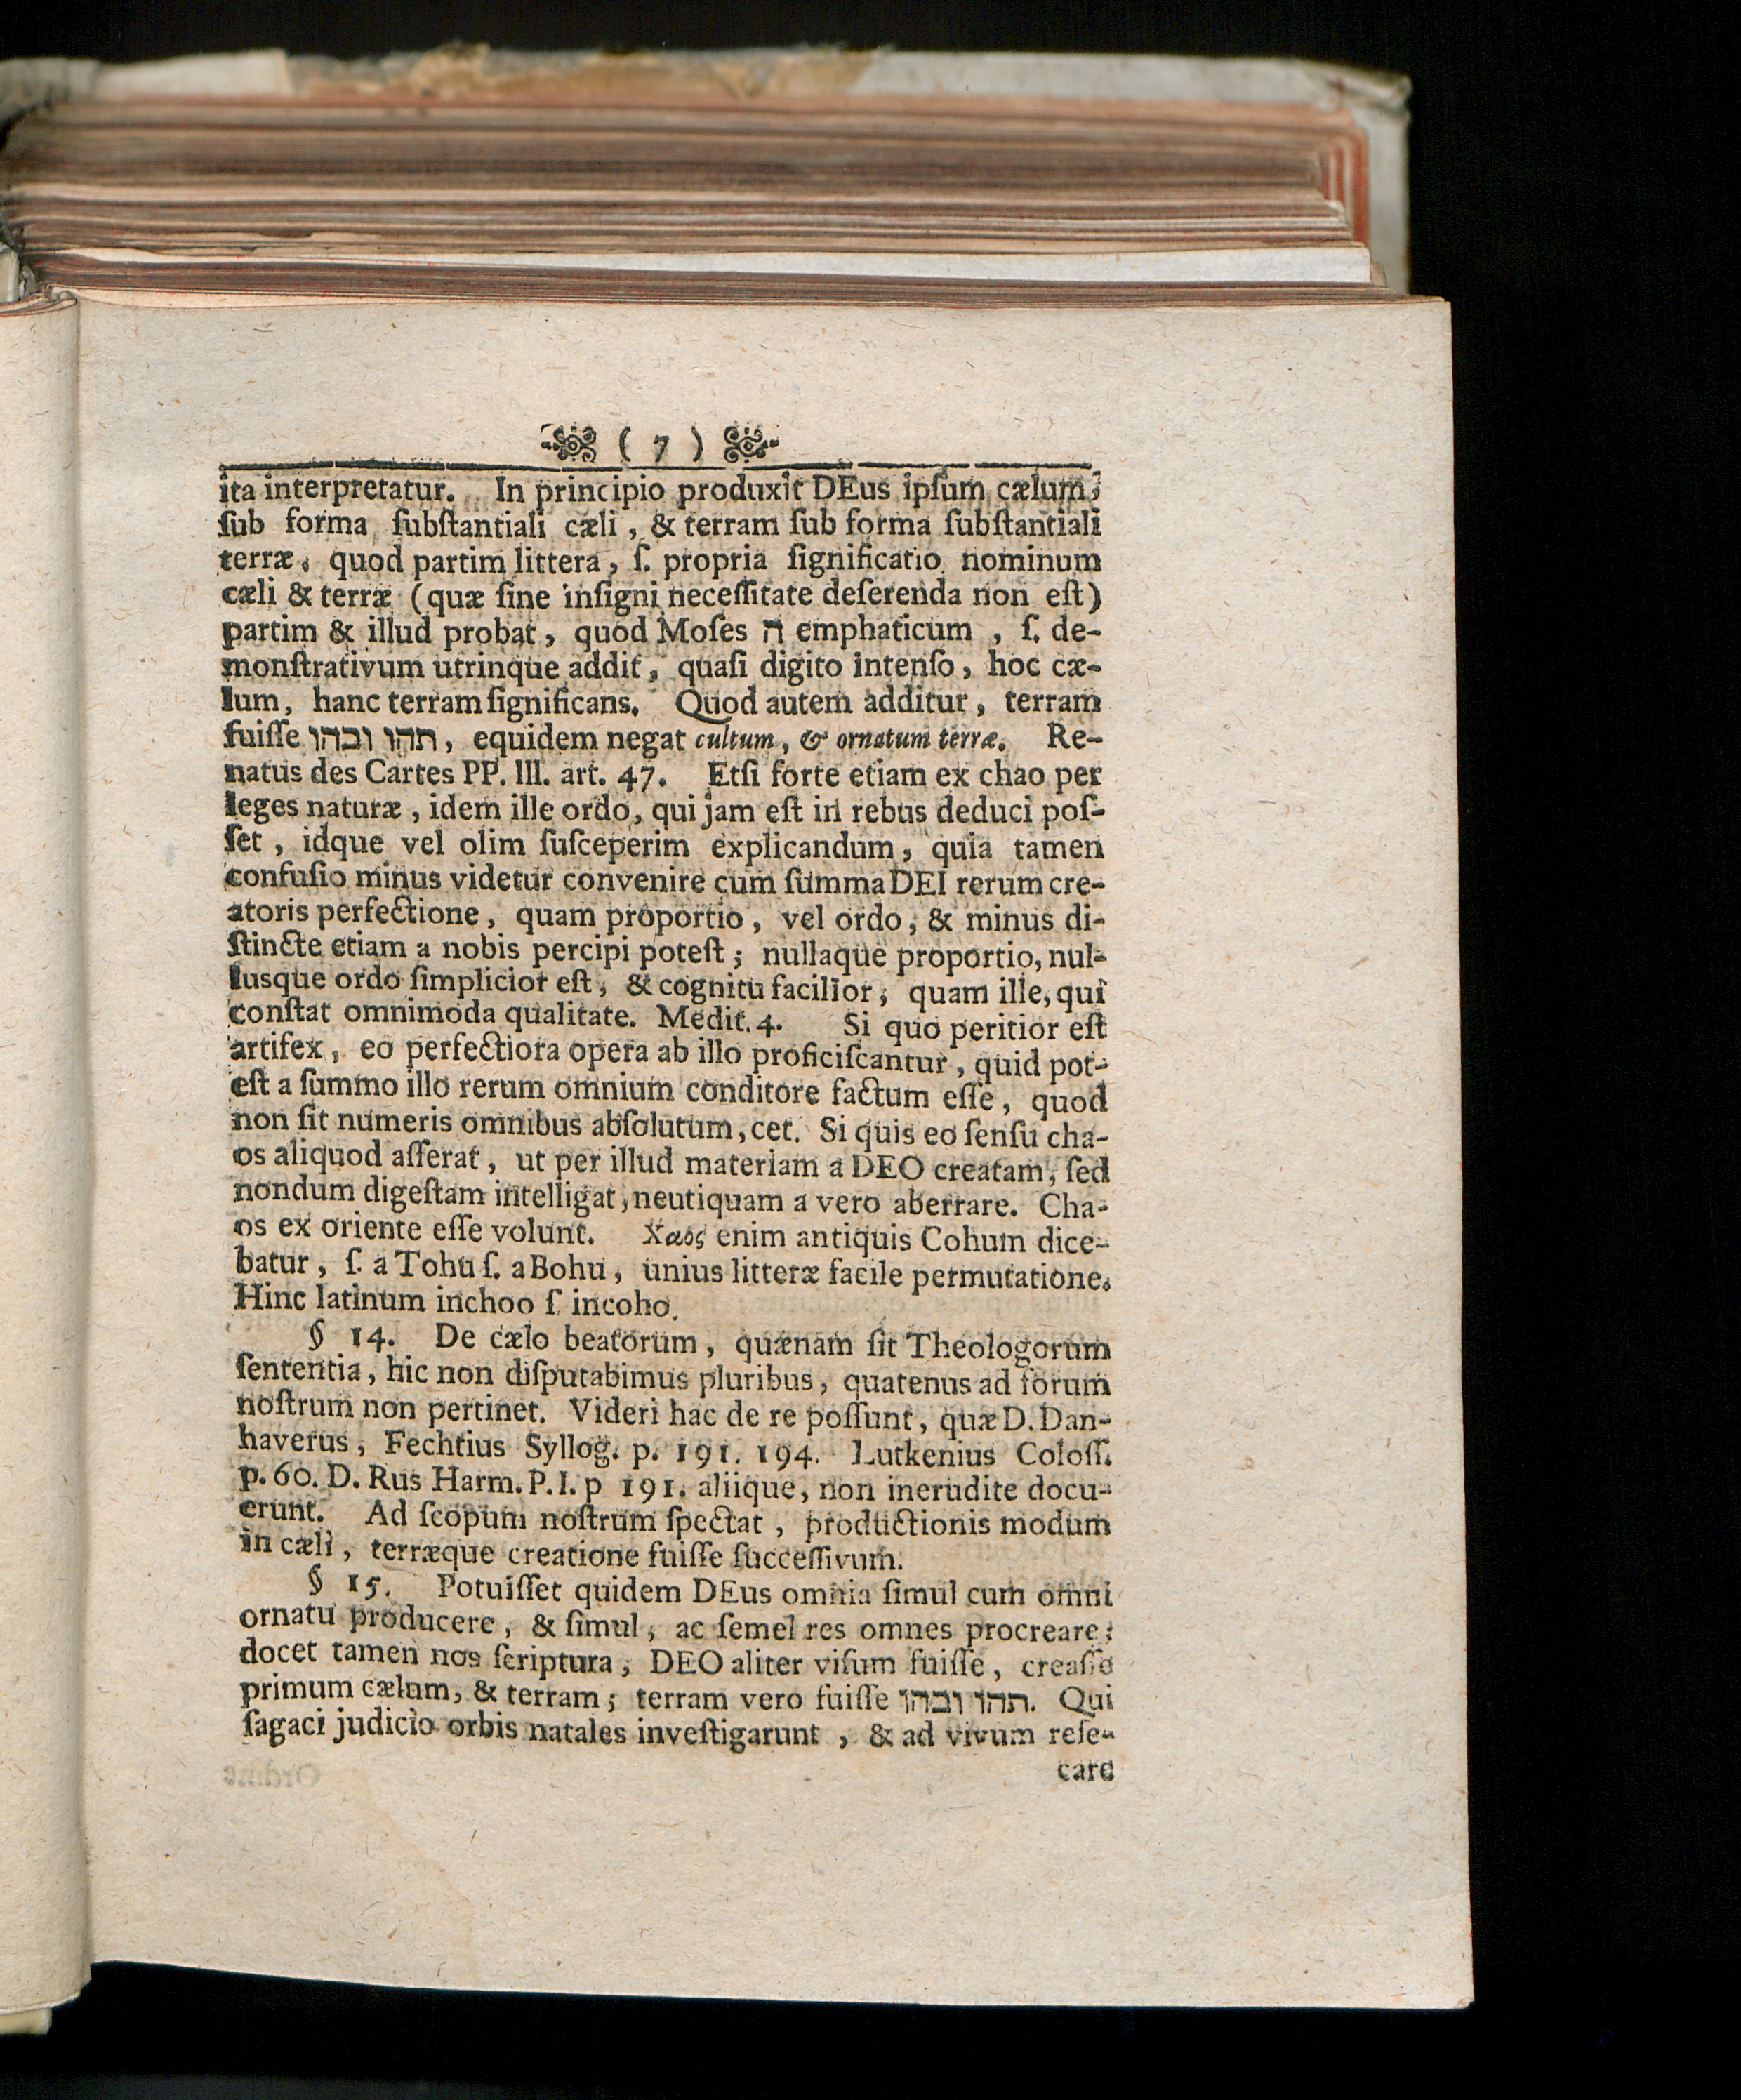 ( 7 )
ita interpretatur. In principio produxit DEus ipſum cælum,
ſub forma ſubſtantiali cæli, & terram ſub forma ſubſtantiali
terræ, quod partim littera, ſ. propria ſignificatio nominum
cæli & terræ (quæ ſine inſigni neceſſitate deſerenda non eſt)
partim & illud probat, quod Moſes ה emphaticum, ſ. de-
monſtrativum utrinque addit, quaſi digito intenſo, hoc cæ-
lum, hanc terram ſignificans. Quod autem additur, terram
fuiſſe תהו ובהו, equidem negat cultum, & ornatum terræ. Re-
natus des Cartes PP. III. art. 47. Etſi forte etiam ex chao per
leges naturæ, idem ille ordo, qui jam eſt in rebus deduci poſ-
ſet, idque vel olim ſuſceperim explicandum, quia tamen
confuſio minus videtur convenire cum ſumma DEI rerum cre-
atoris perfectione, quam proportio, vel ordo, & minus di-
ſtincte etiam a nobis percipi poteſt; nullaque proportio, nul-
lusque ordo ſimplicior eſt, & cognitu facilior, quam ille, qui
conſtat omnimoda qualitate. Medit. 4. Si quo peritior eſt
artifex, eo perfectiora opera ab illo proficiſcantur, quid pot-
eſt a ſummo illo rerum omnium conditore factum eſſe, quod
non ſit numeris omnibus abſolutum, cet. Si quis eo ſenſu cha-
os aliquod aſſerat, ut per illud materiam a DEO creatam, ſed
nondum digeſtam intelligat, neutiquam a vero aberrare. Cha-
os ex oriente eſſe volunt. Χαος enim antiquis Cohum dice-
batur, ſ. a Tohu ſ. a Bohu, unius litteræ facile permutatione.
Hinc latinum inchoo ſ. incoho.
§ 14. De cælo beatorum, quænam ſit Theologorum
ſententia, hic non diſputabimus pluribus, quatenus ad forum
noſtrum non pertinet. Videri hac de re poſſunt, quæ D. Dan-
haverus, Fechtius Syllog. p. 191. 194. Lutkenius Coloſſ.
p. 60. D. Rus Harm. P. I. p 191. aliique, non inerudite docu-
erunt. Ad ſcopum noſtrum ſpectat, productionis modum
in cæli, terræque creatione fuiſſe ſucceſſivum.
§ 15. Potuiſſet quidem DEus omnia ſimul cum omni
ornatu producere, & ſimul, ac ſemel res omnes procreare;
docet tamen nos ſcriptura, DEO aliter viſum fuiſſe, creaſſe
primum cælum, & terram; terram vero fuiſſe תהו ובהו. Qui
ſagaci judicio orbis natales inveſtigarunt, & ad vivum reſe-
care